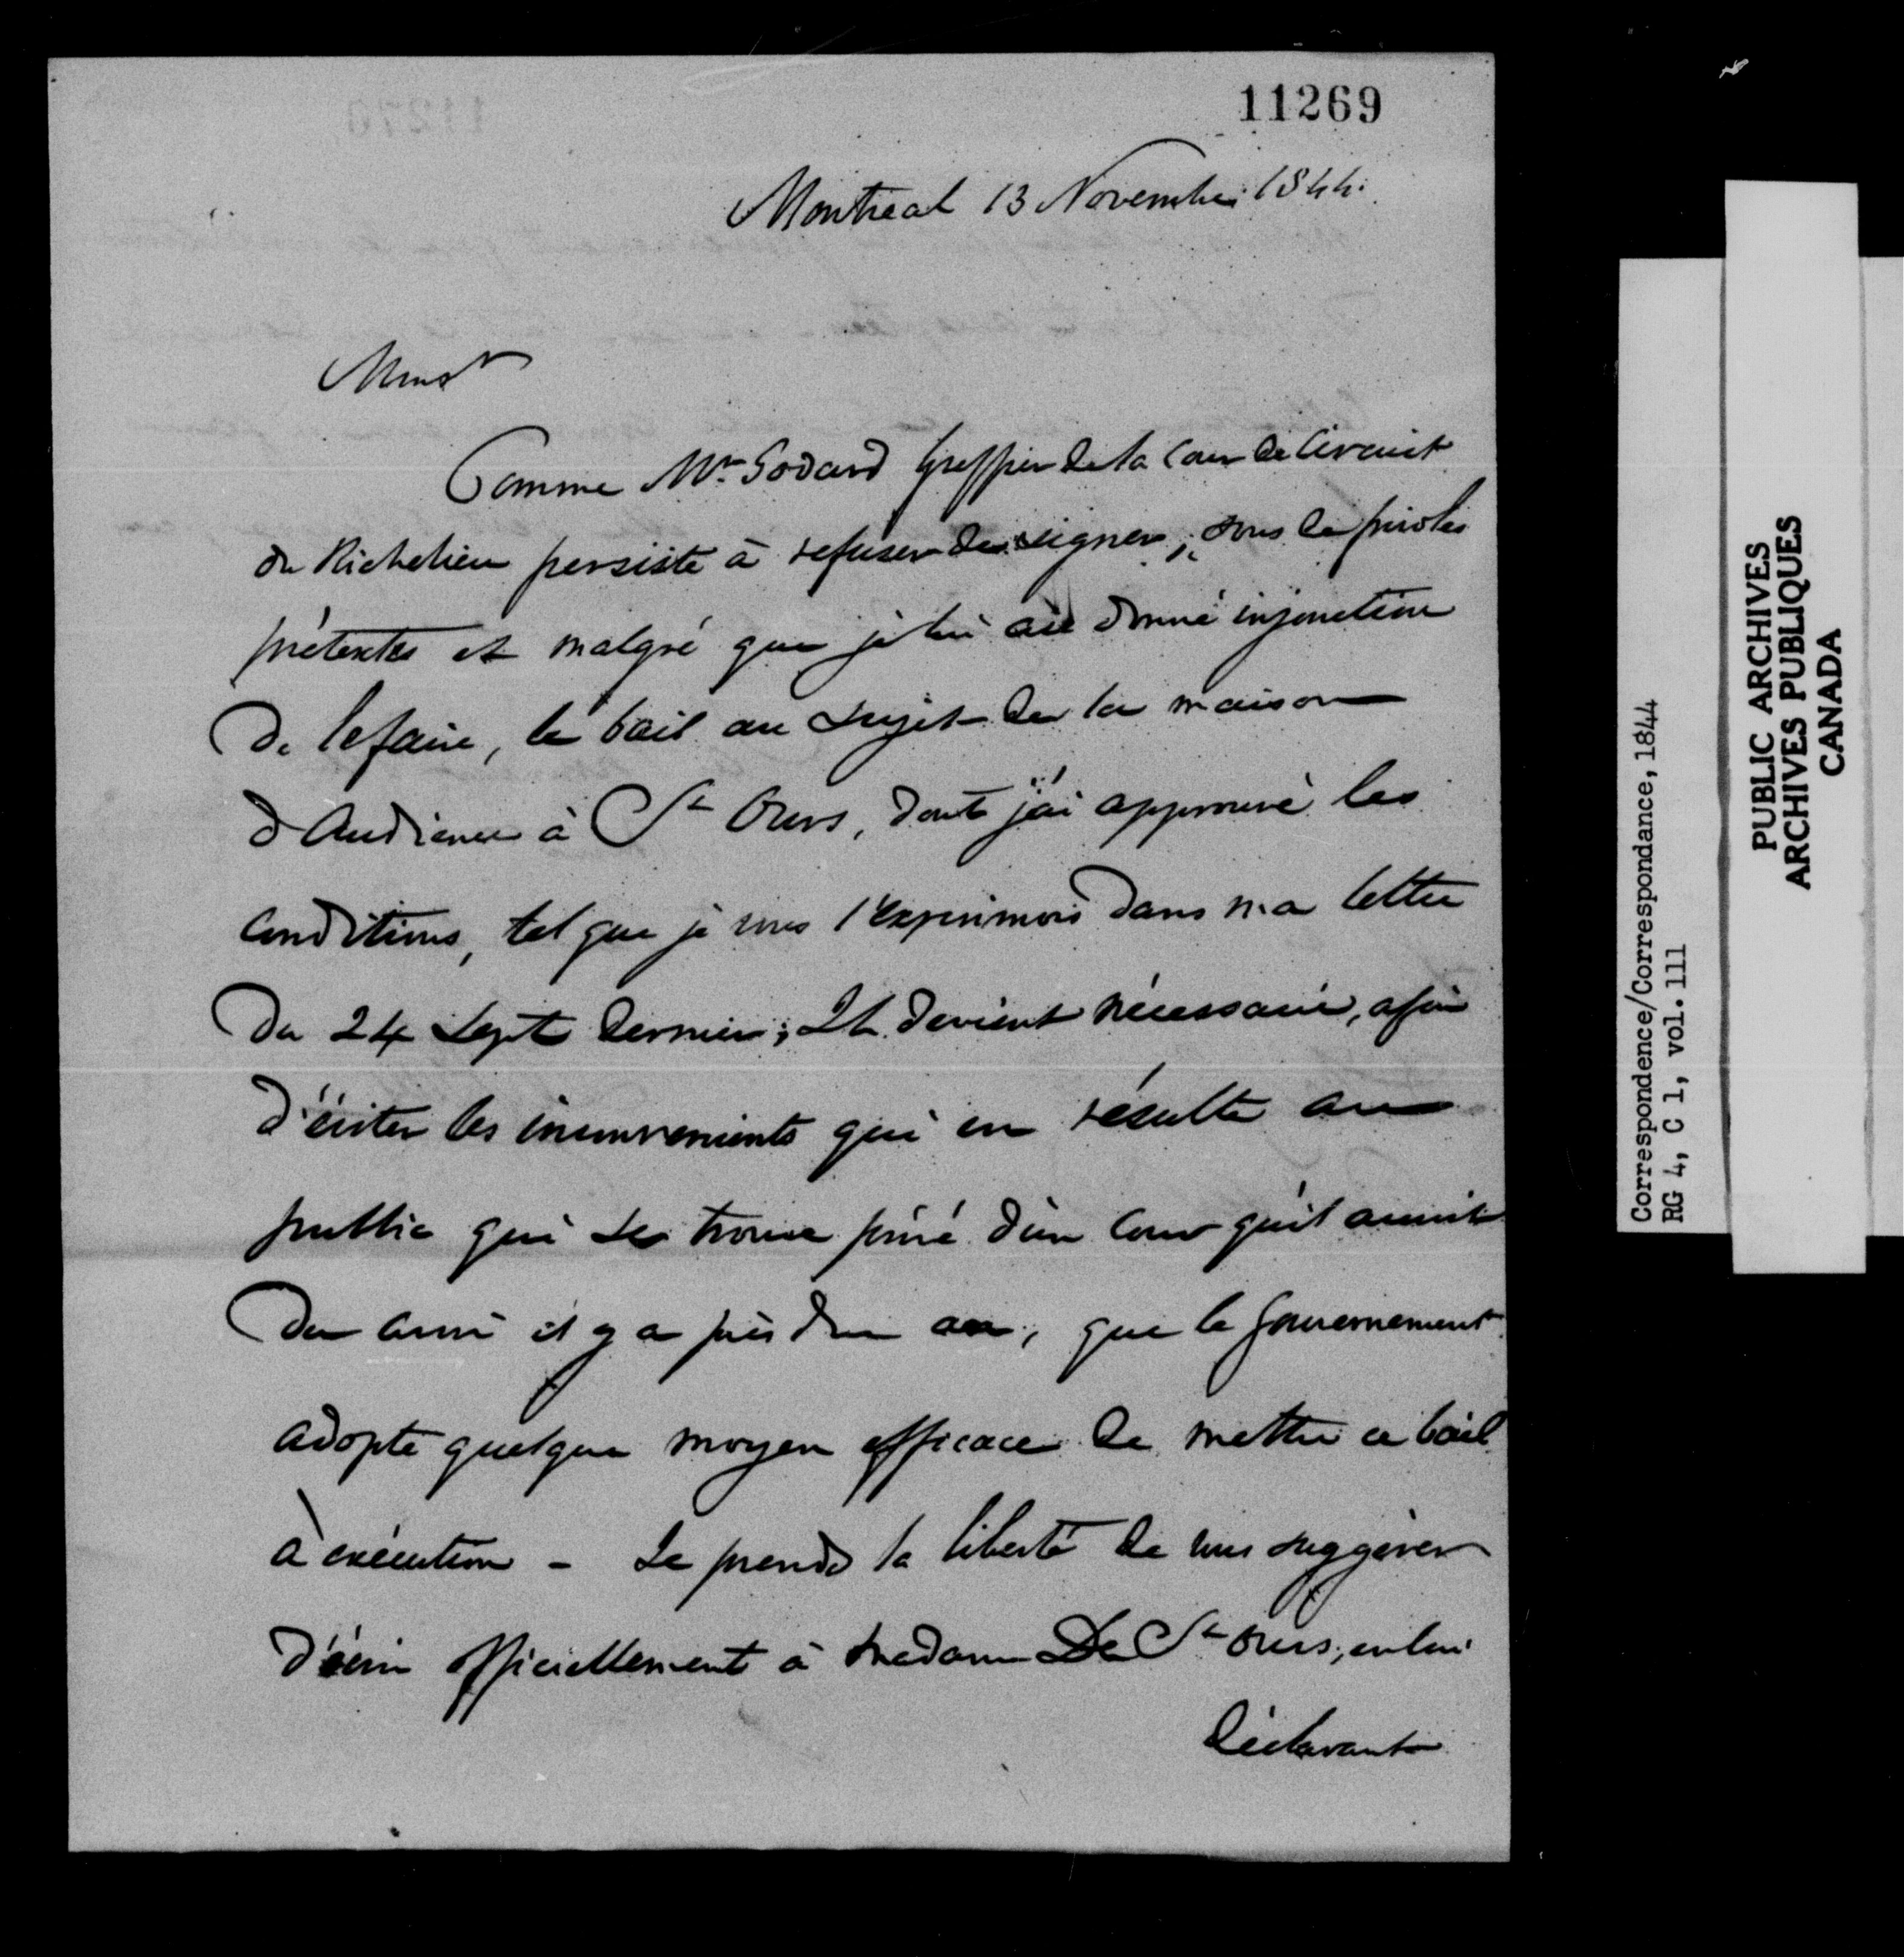 11269
Montreal 13 Novembre 1844.
Monsr
Comme Mr. Godard Greffier de la Cour de Circuit
de Richelieu persiste à refuser de signer, sous de frivoles
prétextes et malgré que je lui aie donné injonction
de le faire, le bail au sujet de la maison
d'Audience à St Ours, dont j'ai approuvé les
conditions, tel que je vous l'exprimois dans ma lettre
du 24 Sept dernier; Il devient nécessaire, afin
d'éviter les inconvenients qui en résulte au
public qui se trouve privé d'un Cour qu'il auroit
du avoir il y a près d'un an, que le Gouvernement
adopte quelque moyen efficace de mettre ce bail
à exécution - Je prends la liberté de vous suggérer
d'écrire officiellement à Madame De St Ours, en lui
déclarant
Correspondence/Correspondance, 1844
RG 4, C 1, vol. 111
PUBLIC ARCHIVES
ARCHIVES PUBLIQUES
CANADA